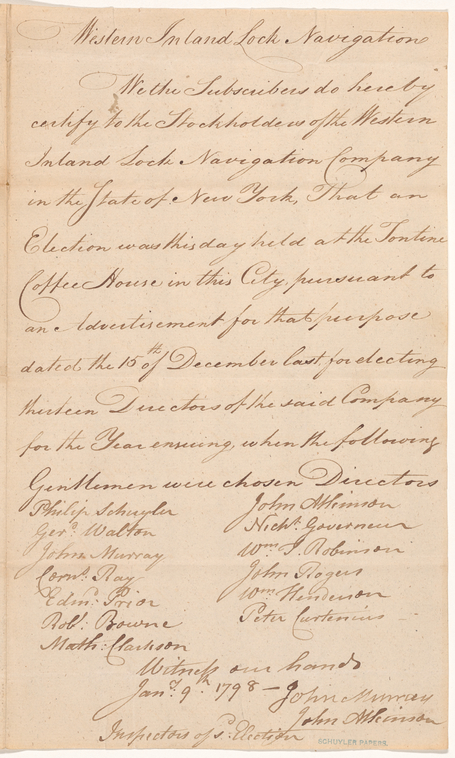 Western Inland Lock Navigation
We the Subscribers do hereby
certify to the Stockholders of the Western
Inland Lock Navigation Company
in the State of New York, That an
Election was this day held at the Tontine
Coffee House in this City, pursuant to
an Advertisement for that purpose
dated the 15th of December last for electing
thirteen Directors of the said Company
for the Year ensuing, when the following
Gentlemen were chosen Directors
Philip Schuyler
Gerd. Walton
John Murray
Corns. Ray
Edmd. Prior
Robt. Bowne
Math: Clarkson
John Atkinson
Nichs. Governeur
Wm. J. Robinson
John Rogers
Wm. Henderson
Peter Curtenius
Witness our hands
Jany. 9th. 1798 — John Murray
John Atkinson
Inspectors of sd. Election
SCHUYLER PAPERS